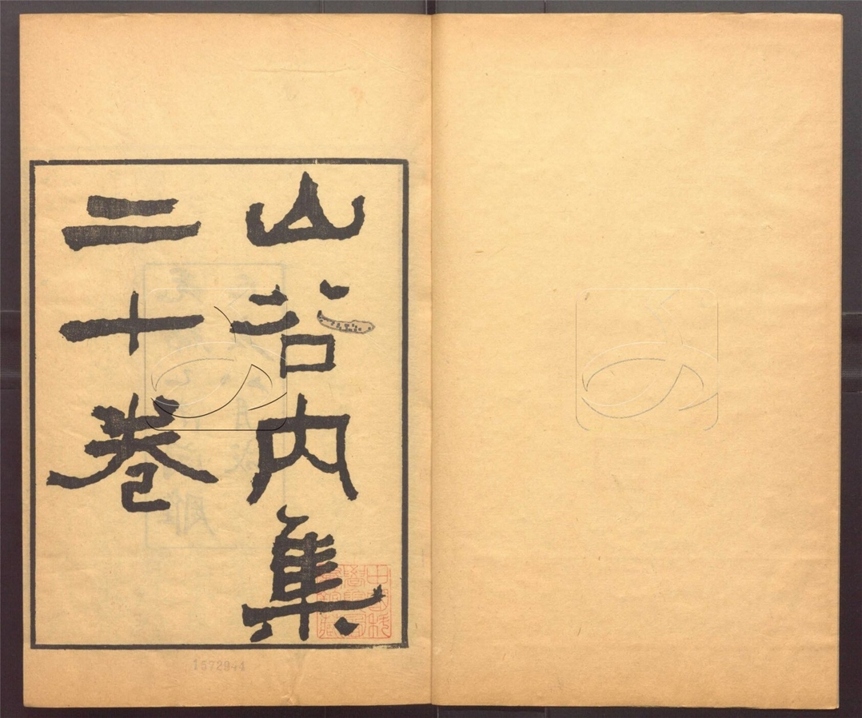 山谷内集
二十卷
15728-1